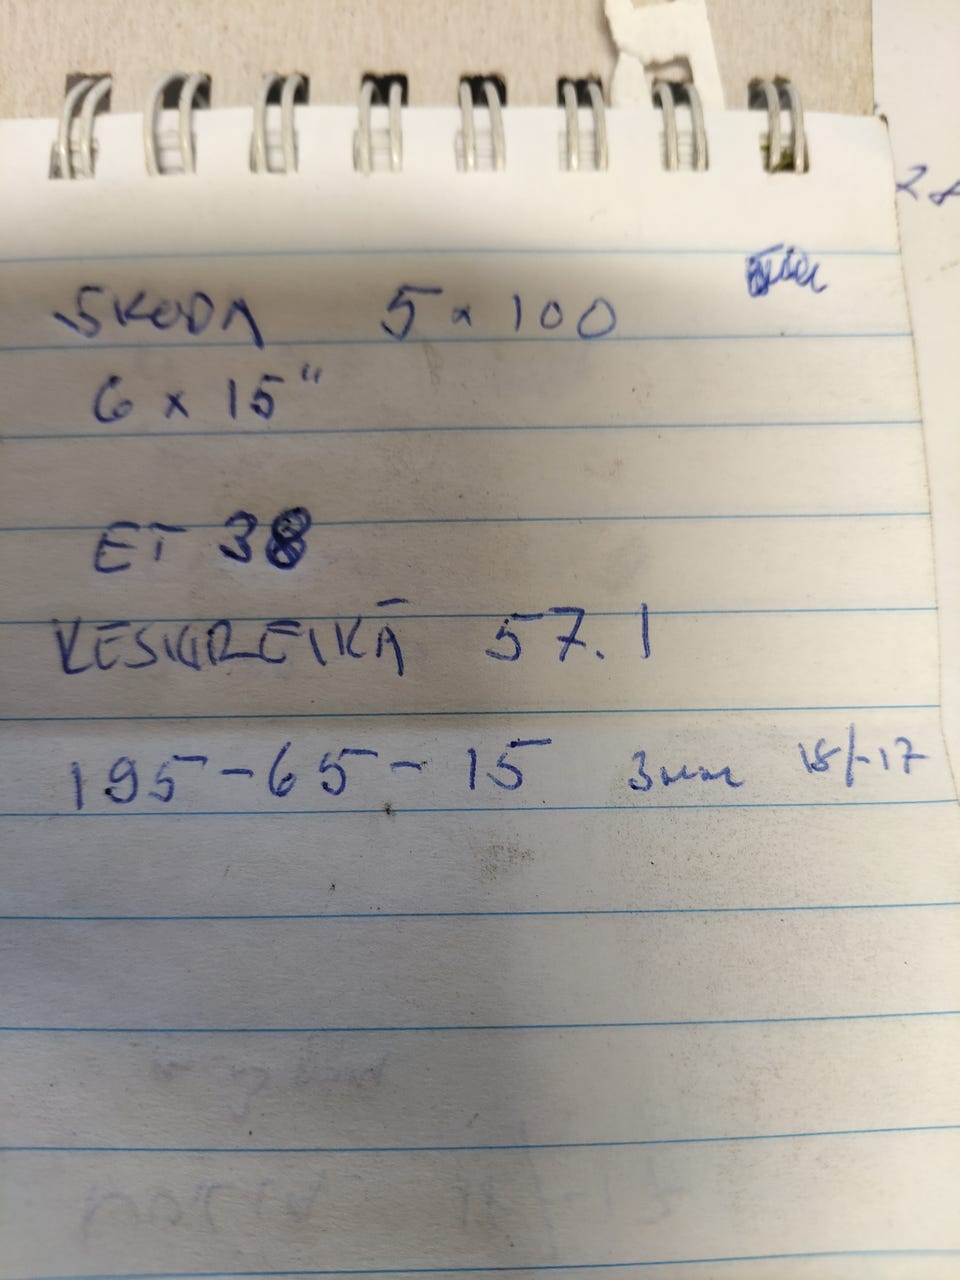 SKODA 5 x 100
6 x 15"
ET 38
KESKIREIKÄ 57.1
195-65-15 3mm 18/-17